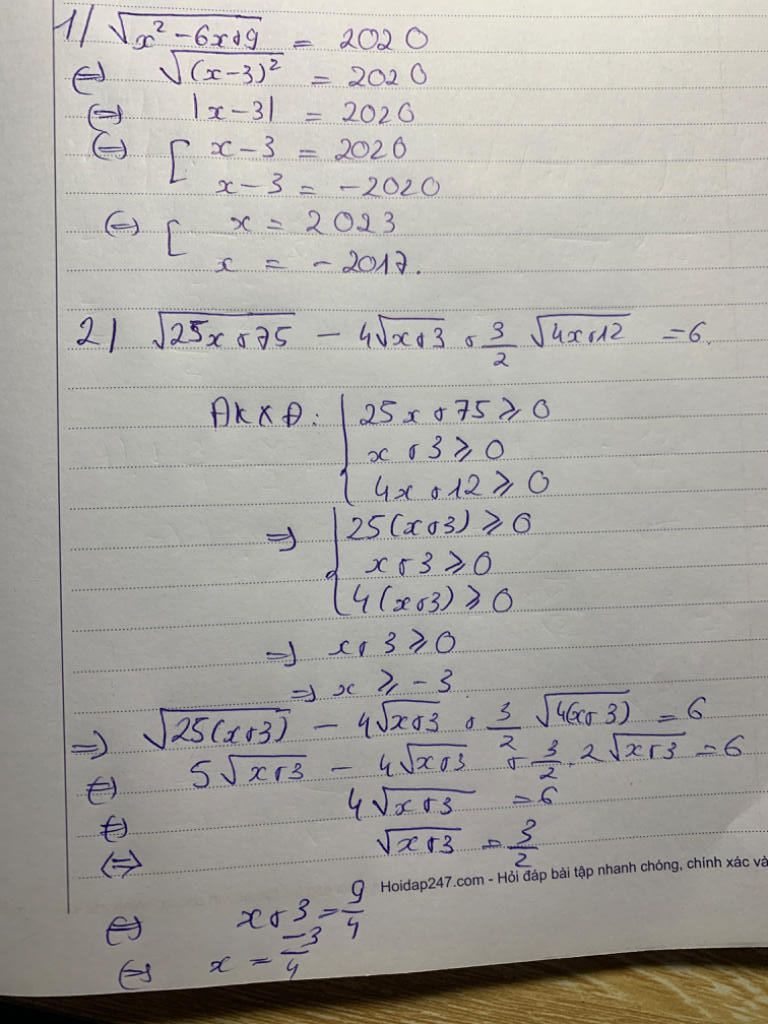 1/ √(x² - 6x + 9) = 2020
⇔ √((x-3)²) = 2020
⇔ |x-3| = 2020
⇔ [ x-3 = 2020
x-3 = -2020
⇔ [ x = 2023
x = -2017.
2/ √(25x+75) - 4√(x+3) + 3/2 √(4x+12) = 6.
ĐKXĐ: { 25x+75 ≥ 0
x+3 ≥ 0
4x+12 ≥ 0
⇒ { 25(x+3) ≥ 0
x+3 ≥ 0
4(x+3) ≥ 0
⇒ x+3 ≥ 0
⇒ x ≥ -3.
⇒ √(25(x+3)) - 4√(x+3) + 3/2 √(4(x+3)) = 6
⇔ 5√(x+3) - 4√(x+3) + 3/2 . 2√(x+3) = 6
⇔ 4√(x+3) = 6
⇔ √(x+3) = 3/2
Hoidap247.com - Hỏi đáp bài tập nhanh chóng, chính xác và
⇔ x+3 = 9/4
⇔ x = -3/4